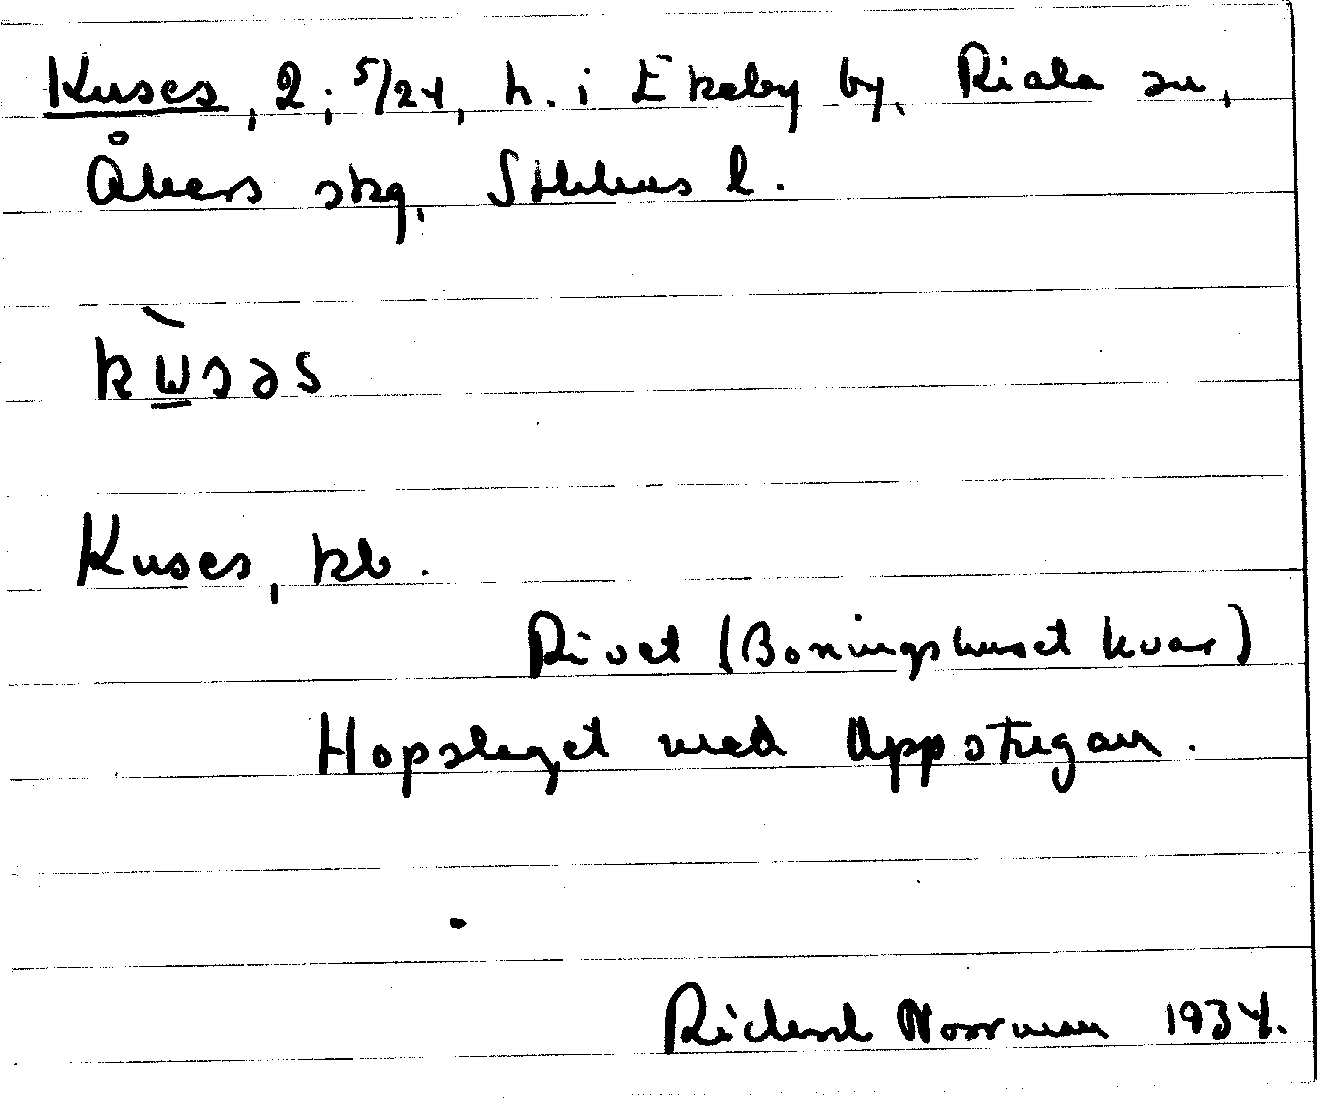 Kuses, 2; 5/24, h. i Ekeby by, Riala sn,
Åkers skg, Sthlms l.
kùsəs
Kuses, kb.
Rivet (Boningshuset kvar)
Hopslaget med Uppstugan.
Richard Norrman 1934.